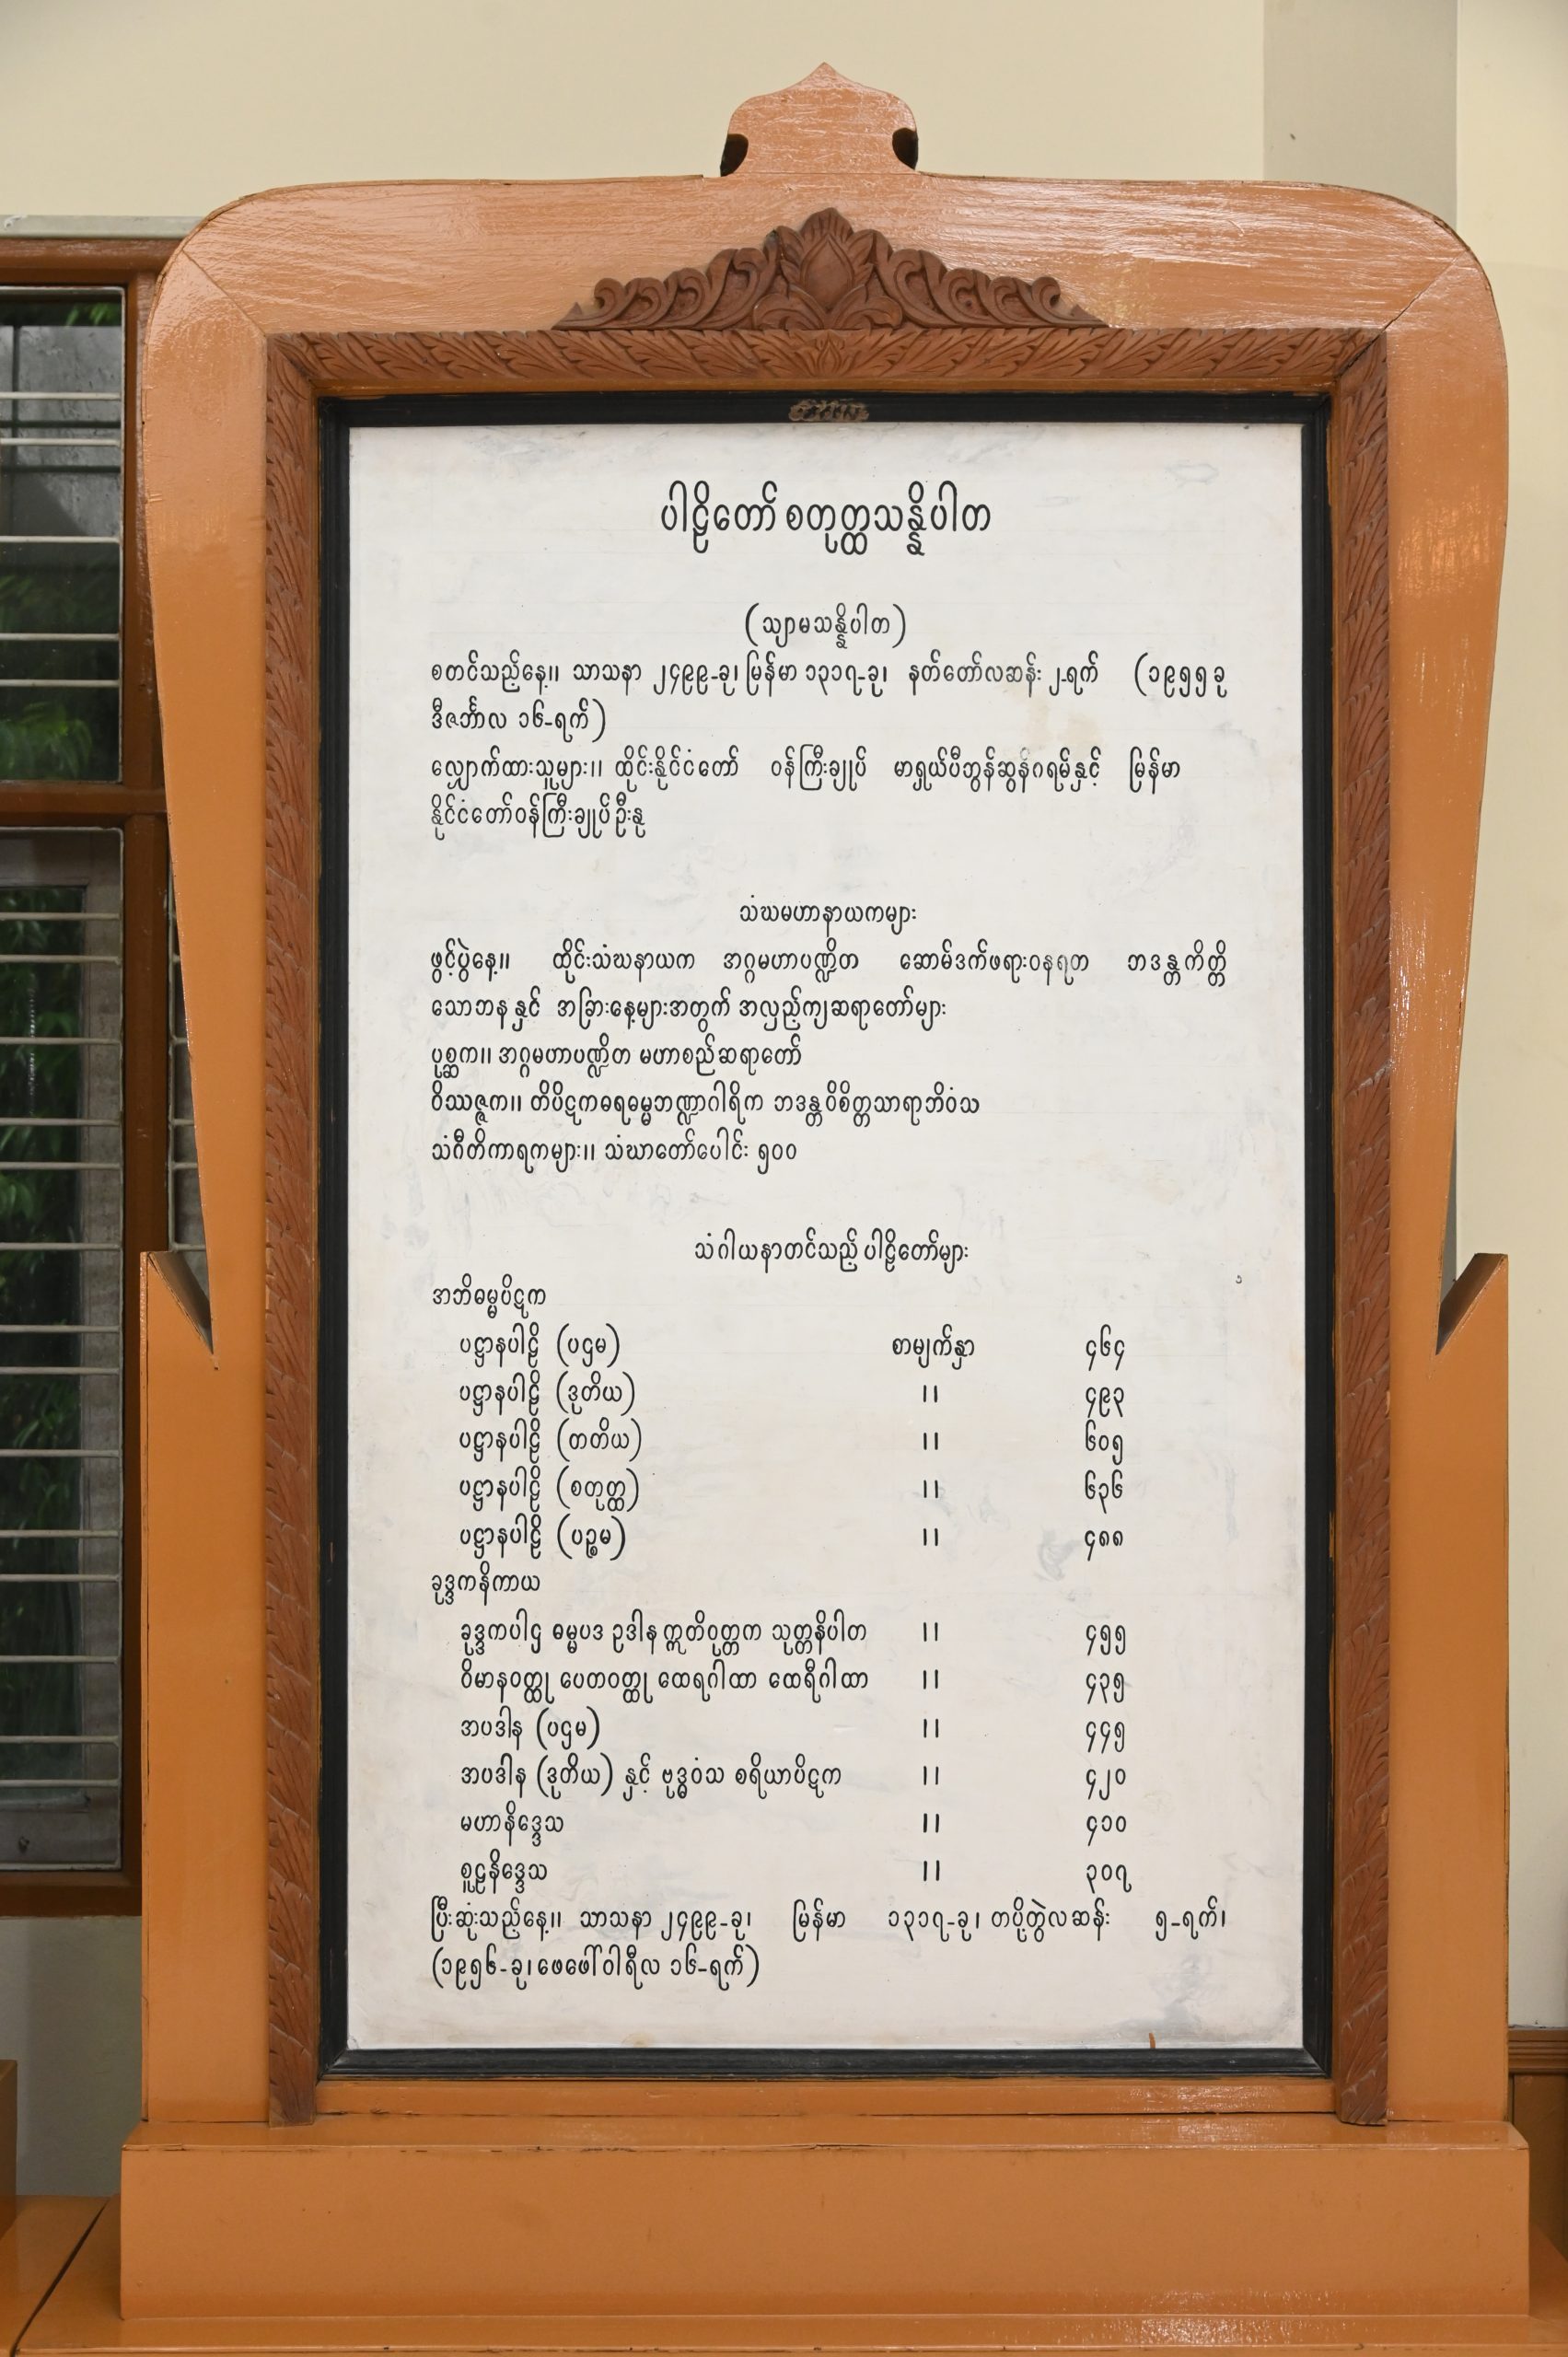 ပါဠိတော် စတုတ္ထသန္နိပါတ
(သျာမသန္နိပါတ)
စတင်သည့်နေ့။ သာသနာ ၂၄၉၉-ခု၊ မြန်မာ ၁၃၁၇-ခု၊ နတ်တော်လဆန်း ၂-ရက် (၁၉၅၅ ခု
ဒီဇင်္ဘာလ ၁၆-ရက်)
လျှောက်ထားသူများ။ ထိုင်းနိုင်ငံတော် ဝန်ကြီးချုပ် မာရှယ်ပီဘွန်ဆွန်ဂရမ်နှင့် မြန်မာ
နိုင်ငံတော်ဝန်ကြီးချုပ်ဦးနု
သံဃမဟာနာယကများ
ဖွင့်ပွဲနေ့။ ထိုင်းသံဃနာယက အဂ္ဂမဟာပဏ္ဍိတ ဆောမ်ဒက်ဖရားဝနရတ ဘဒန္တကိတ္တိ
သောဘန နှင့် အခြားနေ့များအတွက် အလှည့်ကျဆရာတော်များ
ပုစ္ဆက။ အဂ္ဂမဟာပဏ္ဍိတ မဟာစည်ဆရာတော်
ဝိဿဇ္ဇက။ တိပိဋကဓရဓမ္မဘဏ္ဍာဂါရိက ဘဒန္တဝိစိတ္တသာရာဘိဝံသ
သံဂီတိကာရကများ။ သံဃာတော်ပေါင်း ၅၀၀
သံဂါယနာတင်သည့် ပါဠိတော်များ
အဘိဓမ္မပိဋက
ပဋ္ဌာနပါဠိ (ပဌမ) စာမျက်နှာ ၄၆၄
ပဋ္ဌာနပါဠိ (ဒုတိယ) ။ ၄၉၃
ပဋ္ဌာနပါဠိ (တတိယ) ။ ၆၀၅
ပဋ္ဌာနပါဠိ (စတုတ္ထ) ။ ၆၃၆
ပဋ္ဌာနပါဠိ (ပဉ္စမ) ။ ၄၈၈
ခုဒ္ဒကနိကာယ
ခုဒ္ဒကပါဌ ဓမ္မပဒ ဥဒါန ဣတိဝုတ္တက သုတ္တနိပါတ ။ ၄၅၅
ဝိမာနဝတ္ထု ပေတဝတ္ထု ထေရဂါထာ ထေရီဂါထာ ။ ၄၃၅
အပဒါန (ပဌမ) ။ ၄၄၅
အပဒါန (ဒုတိယ) နှင့် ဗုဒ္ဓဝံသ စရိယာပိဋက ။ ၄၂၀
မဟာနိဒ္ဒေသ ။ ၄၁၀
စူဠနိဒ္ဒေသ ။ ၃၀၇
ပြီးဆုံးသည့်နေ့။ သာသနာ ၂၄၉၉-ခု၊ မြန်မာ ၁၃၁၇-ခု၊ တပို့တွဲလဆန်း ၅-ရက်၊
(၁၉၅၆-ခု၊ ဖေဖော်ဝါရီလ ၁၆-ရက်)